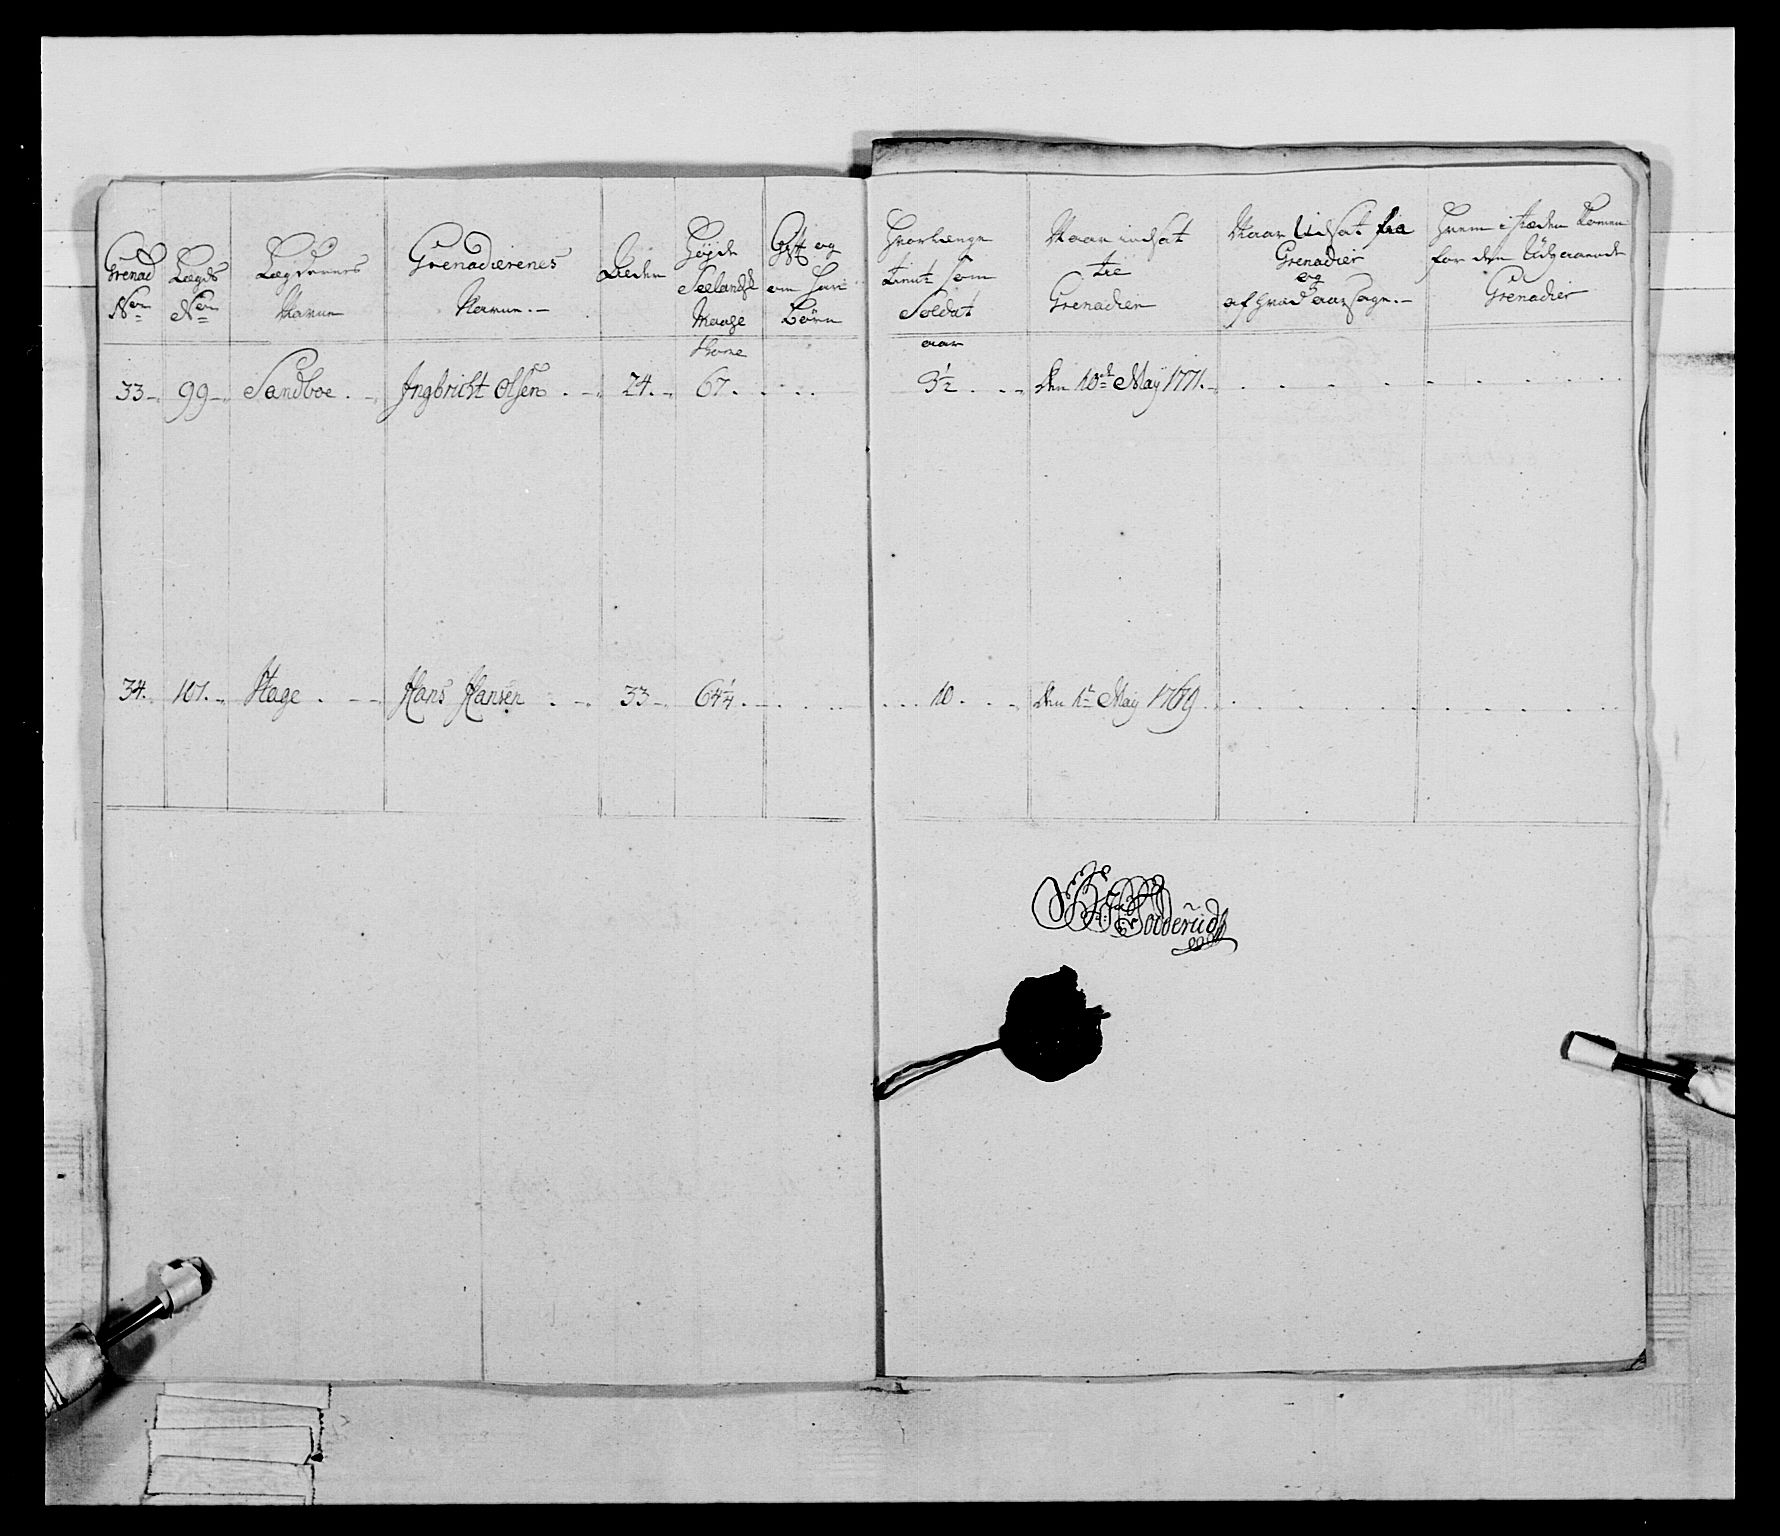 Grenad
Ner
Lægds
Ner
Lægdernes
Navne
Grenadierenes
Navne.-
Alder
Høyde
Seelandsk
Maale
Gift og
om har
Børn
Hvorlænge
tient som
Soldat
Naar indsat
til
Grenadier
Naar Udsat fra
Grenadier
og
af hvad aarsage.-
Hvem i stæden kommen
for den Udgaaende
Grenadier
Tomme
aar
33 99 Sandboe Ingbricht Olsen 24. 67. 3½ den 10de May 1771.
34. 101. Hage Hans Hansen 33 64¼ 10 den 1te May 1769